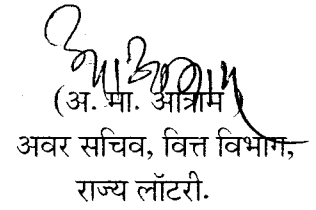 (अ. मा. आत्राम)
अवर सचिव, वित्त विभाग,
राज्य लॉटरी.